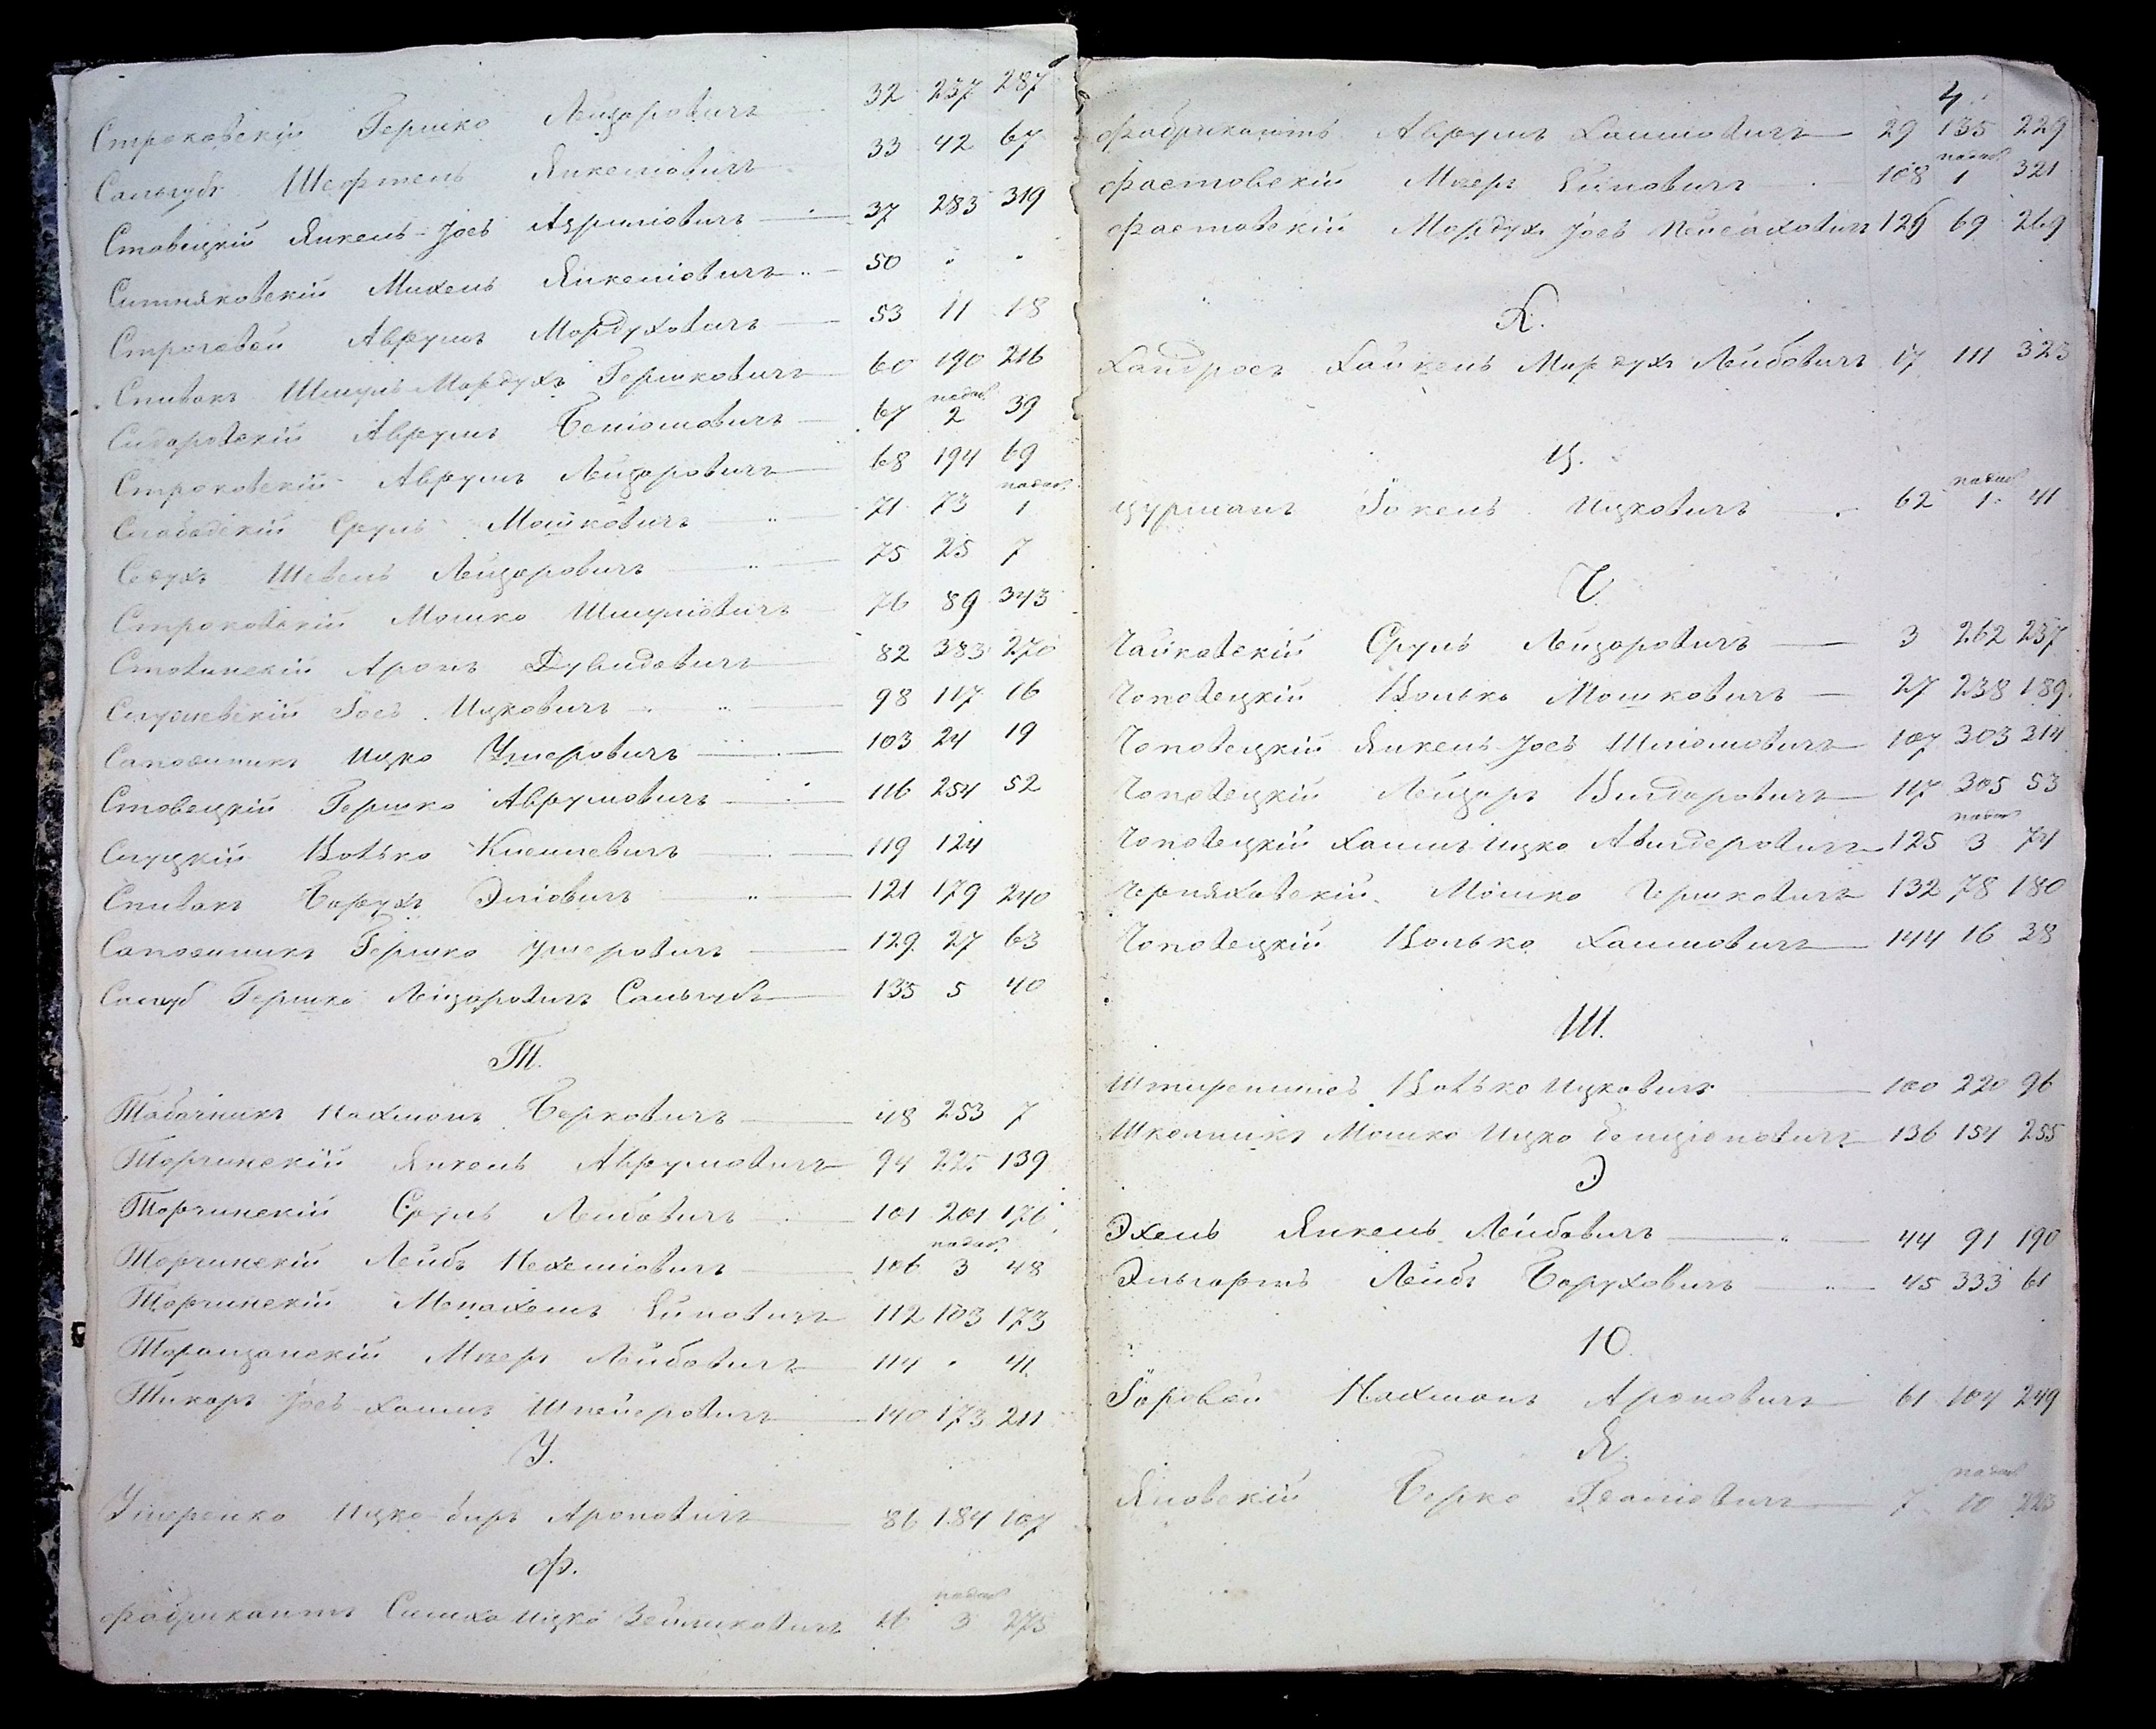 Строковскій Гершко Лейзаровичъ 32 237 287
Сальгубъ Шефтель Янкеліовичъ 33 42 67
Ставецкій Янкель-Іосъ Авруміовичъ 37 283 319
Ситняковскій Михель Янкеліовичъ 50 " "
Строговой Аврумъ Мордуховичъ 53 11 18
Спивакъ Шмуль Мордухъ Гершковичъ 60 190 216
Сидоровскій Аврумъ Беніоміовичъ 67 надав. 2 39
Строковскій Аврумъ Лейзаровичъ 68 194 69
Слободскій Сруль Мошковичъ 71 73 надав. 1
Шевель Лейзаровичъ 75 25 7
Строковскій Мошко Шмуліовичъ 76 89 343
Ставинскій Аронъ Дувидовичъ 82 383 270
Іосъ Ицковичъ 98 117 16
Сапожникъ Ицко Ушеровичъ 103 24 19
Ставецкій Гершко Аврумовичъ 116 254 52
Слуцкій Волько 119 124
Спивакъ Борухъ Эліовичъ 121 179 240
Сапожникъ Гершко Ушеровичъ 129 27 63
Гершко Лейзаровичъ Сальгубъ 135 5 40
Т.
Табачникъ Нахманъ Берковичъ 48 253 7
Торчинскій Янкель Аврумовичъ 94 225 139
Торчинскій Сруль Лейбовичъ 101 201 176
Торчинскій Лейбъ Нехеміовичъ 106 надав. 3 48
Торчинскій Менахемъ Єйновичъ 112 103 173
Мееръ Лейбовичъ 114 " 41
Токаръ Іосъ-Хаимъ Шнейеровичъ 140 173 211
У.
Ушеренко Ицко-Беръ Ароновичъ 86 184 107
Ф.
Фабрикантъ Симха Ицко Зейликовичъ 16 надав. 3 275
4.
Фабрикантъ Аврумъ Хаимовичъ 29 135 229
Фастовскій Мееръ Єйновичъ 108 надав. 1 321
Фастовскій Мордухъ Іосъ Пейсаховичъ 126 69 269
Х.
Хандросъ Хайкель Мордухъ Лейбовичъ 17 111 323
Ц.
Цурманъ Іокель Ицковичъ 62 надав. 1 41
Ч.
Чайковскій Сруль Лейзаровичъ 3 262 237
Чоповецкій Волько Мошковичъ 27 238 189
Чоповецкій Янкель Іосъ Шліомовичъ 107 303 314
Чоповецкій Лейзаръ 117 305 53
Чоповецкій Хаимъ Ицко Авигдеровичъ 125 надав. 3 74
Черняховскій Мошко Гершковичъ 132 78 180
Чоповецкій Волько Хаимовичъ 144 16 38
Ш.
Волько Ицковичъ 100 220 96
Школникъ Мошко Ицко Бенціоновичъ 136 154 255
Э
Эхель Янкель Лейбовичъ 44 91 190
Эльгортъ Лейбъ Боруховичъ 45 333 61
Ю.
Юровой Нахманъ Ароновичъ 61 104 249
Я.
Яновскій Берко 7 надав. 10 223